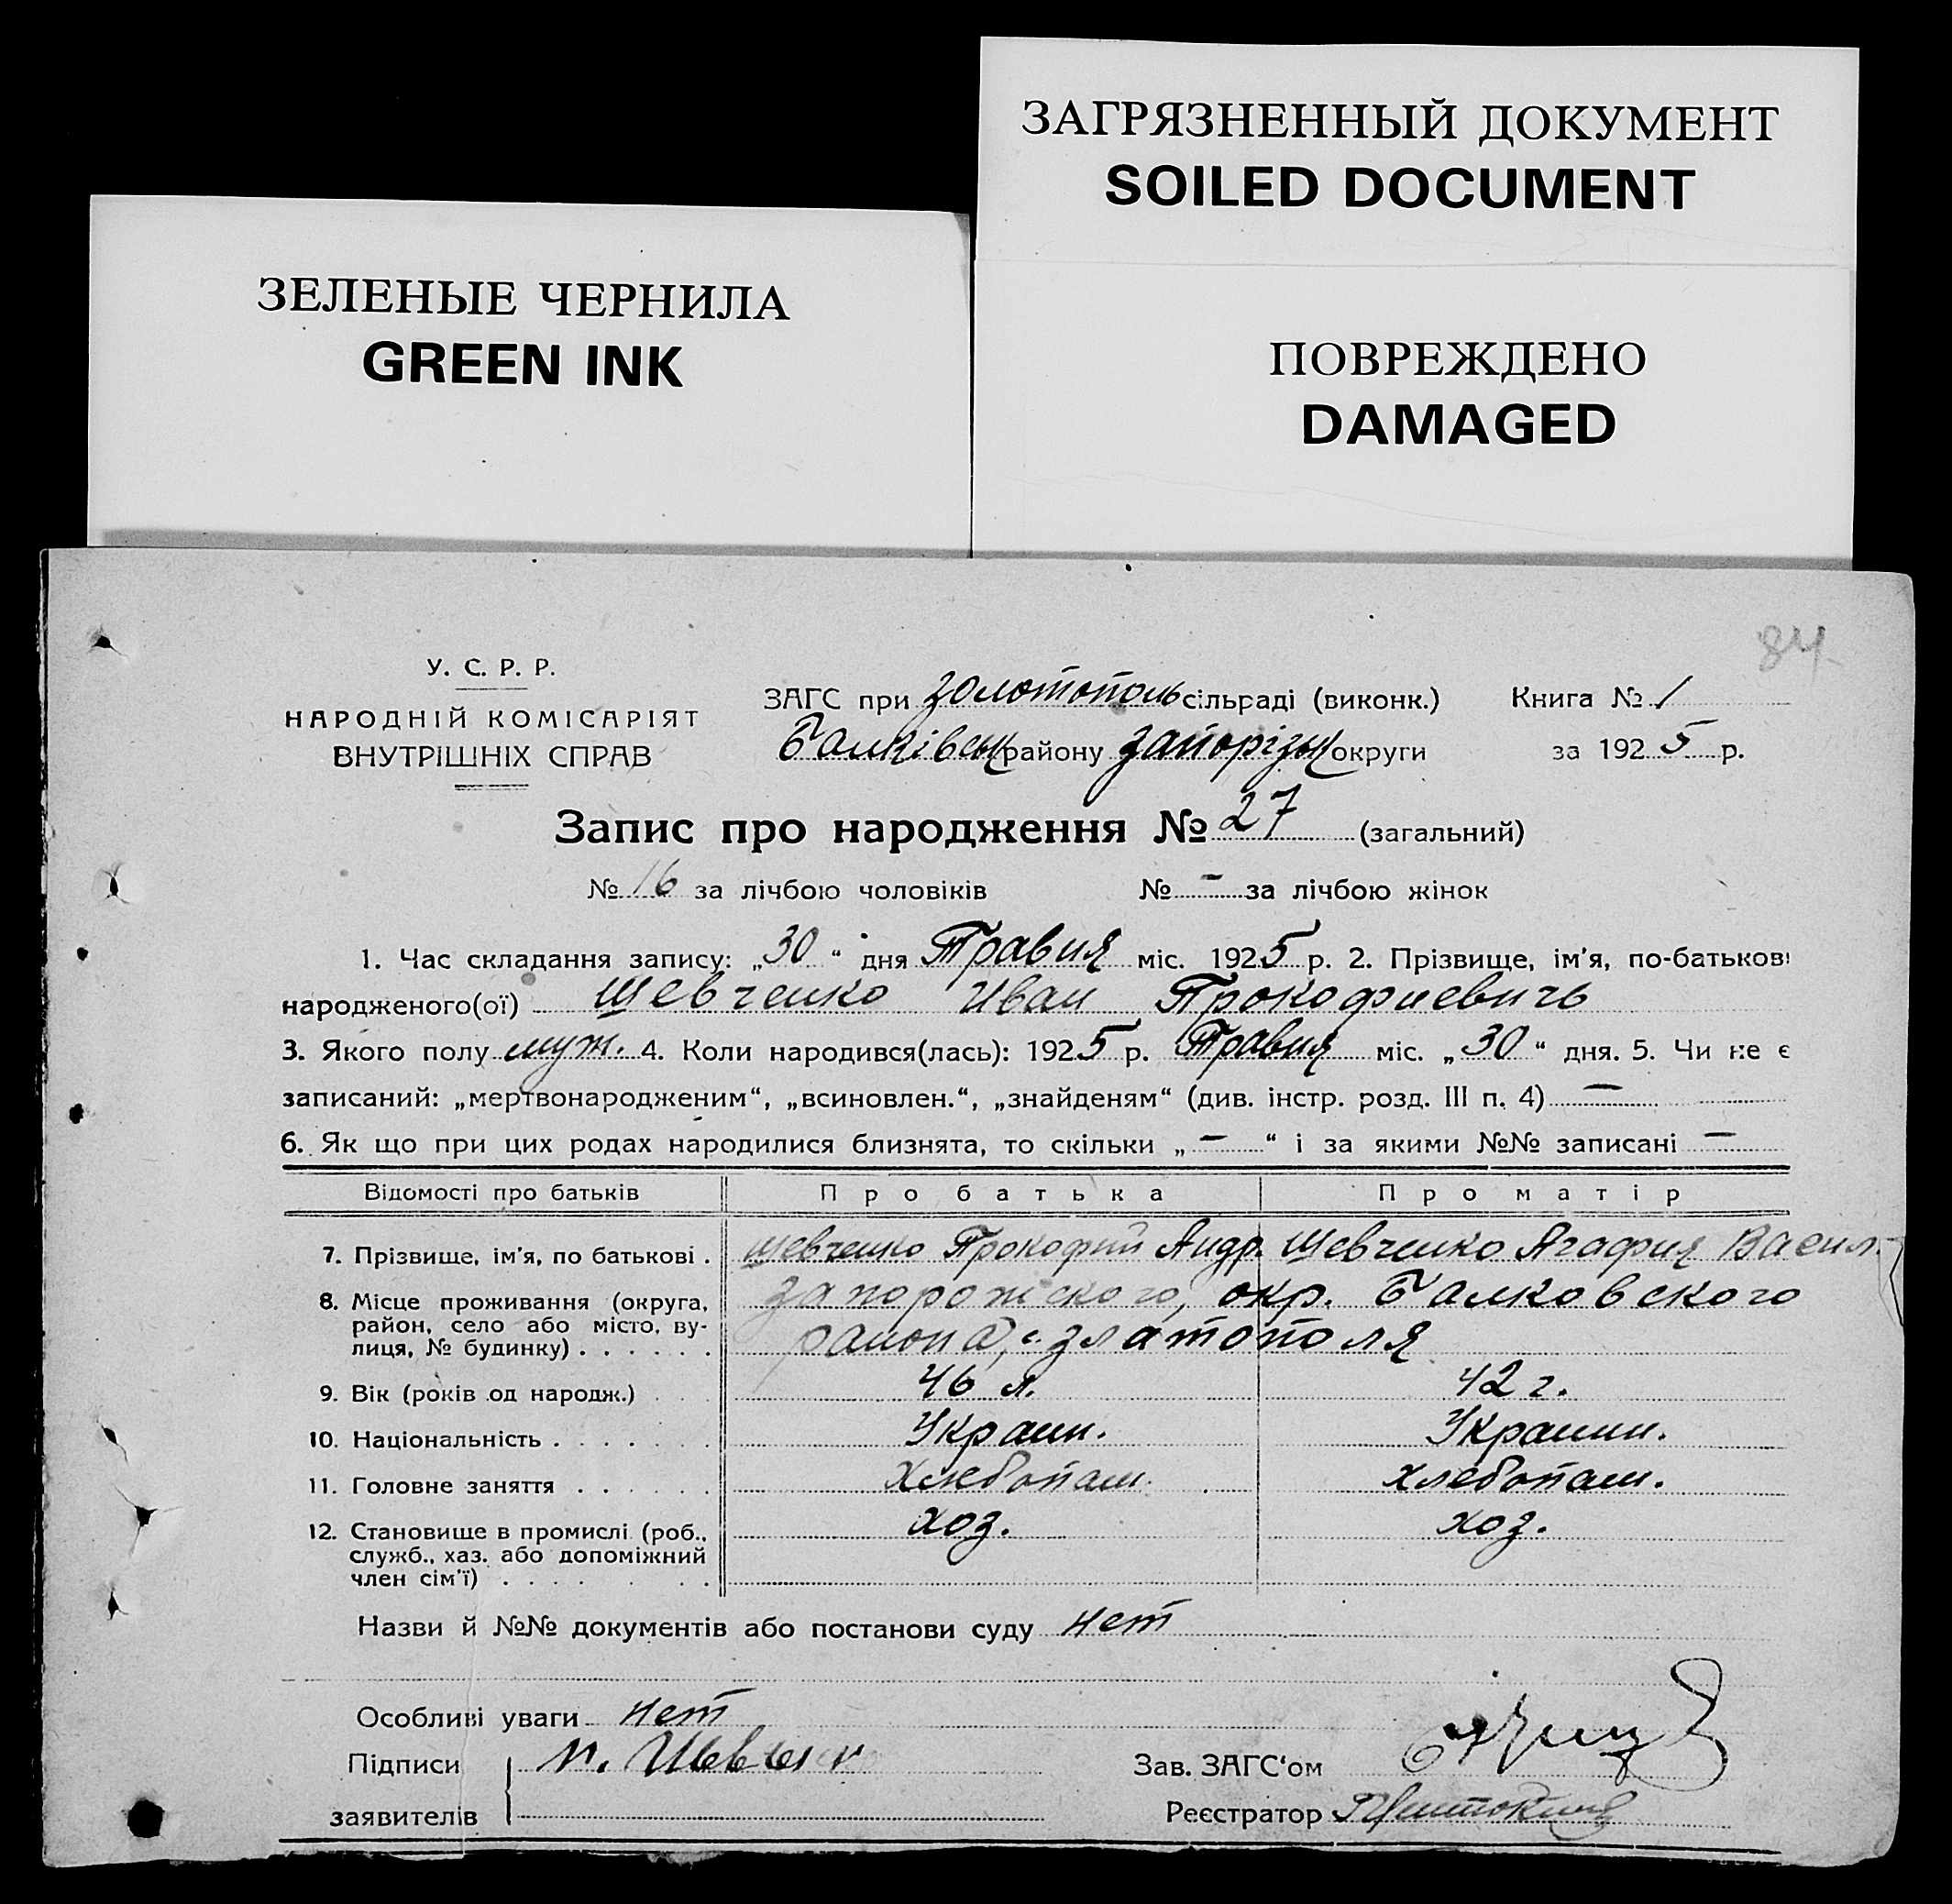 ЗАГРЯЗНЕННЫЙ ДОКУМЕНТ
SOILED DOCUMENT
ЗЕЛЕНЫЕ ЧЕРНИЛА
GREEN INK
ПОВРЕЖДЕНО
DAMAGED
84
У. С. Р. Р.
НАРОДНІЙ КОМІСАРІЯТ
ВНУТРІШНІХ СПРАВ
ЗАГС при Золотополь сільраді (виконк.) Книга № 1
Балківськ району Запорізьк округи за 1925 р.
Запис про народження № 27 (загальний)
№ 16 за лічбою чоловіків № — за лічбою жінок
1. Час складання запису: „30“ дня Травня міс. 1925 р. 2. Прізвище, ім'я, по-батькові
народженого(ої) Шевченко Иван Прокофиевичь
3. Якого полу муж. 4. Коли народився(лась): 1925 р. Травня міс. „30“ дня. 5. Чи не є
записаний: „мертвонародженим“, „всиновлен.“, „знайденям“ (див. інстр. розд. III п. 4) —
6. Як що при цих родах народилися близнята, то скільки „—“ і за якими №№ записані —
Відомості про батьків Про батька Про матір
7. Прізвище, ім'я, по батькові . Шевченко Прокофий Андр. Шевченко Агафия Васил.
8. Місце проживання (округа, Запорожского, окр. Балковского
район, село або місто, ву-
лиця, № будинку) . . . . . . района, с. Златополя
9. Вік (років од народж.) 46 л. 42 г.
10. Національність . . . . . . . Украин. Украинн.
11. Головне заняття . . . . . . Хлебопаш. Хлебопаш.
12. Становище в промислі (роб., хоз. хоз.
служб., хаз. або допоміжний
член сім'ї) . . . . . . .
Назви й №№ документів або постанови суду нет
Особливі уваги нет
Підписи п. Шевченк Зав. ЗАГС'ом
заявителів Реєстратор